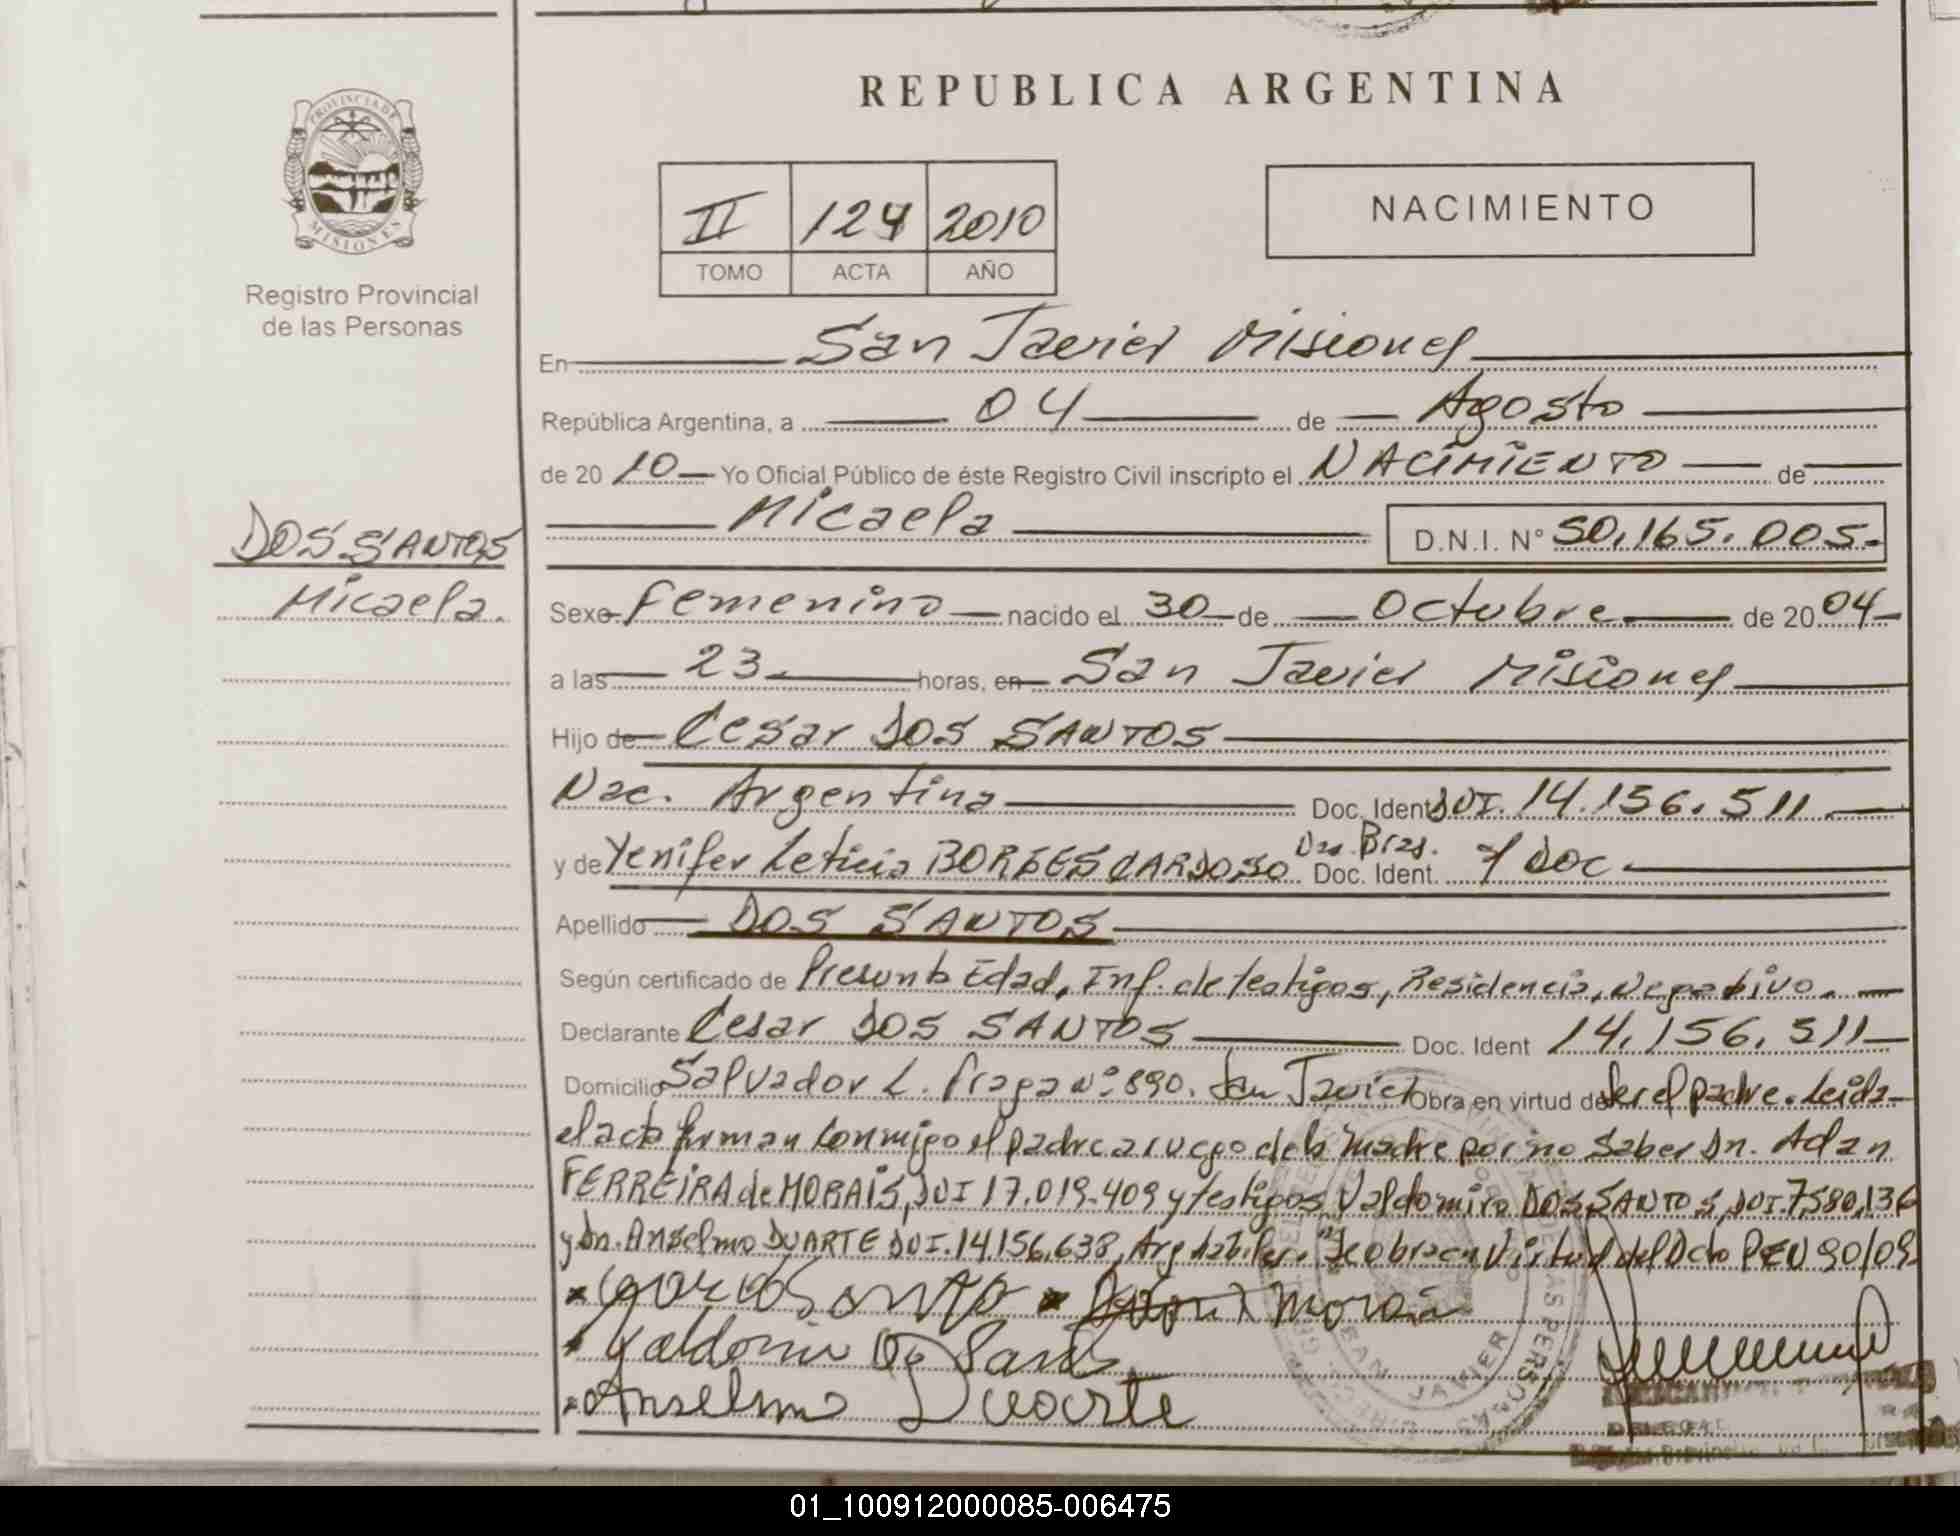 REPUBLICA ARGENTINA
PROVINCIA DE
MISIONES
Registro Provincial
de las Personas
II 124 2010
TOMO ACTA AÑO
NACIMIENTO
En San Javier Misiones
República Argentina, a 04 de Agosto
de 20 10 Yo Oficial Público de éste Registro Civil inscripto el NACIMIENTO de
Micaela D.N.I. N° 50.165.005.-
DOS SANTOS
Micaela.
Sexo Femenino nacido el 30 de Octubre de 20 04
a las 23. horas, en San Javier Misiones
Hijo de Cesar DOS SANTOS
Nac. Argentina Doc. Ident DUI. 14.156.511.
y de Yenifer Leticia BORGES CARDOSO Bras. Doc. Ident. s/ DOC
Apellido DOS SANTOS
Según certificado de Presunta Edad, Inf. de testigos, Residencia, Negativo.
Declarante Cesar DOS SANTOS Doc. Ident 14.156.511
Domicilio Salvador L. Fraga N° 890. San Javier Obra en virtud de Ser el padre. Leida
el acta firman conmigo el padre a ruego de la madre por no saber Dn. Adan
FERREIRA de MORAIS, DUI 17.019.409 y testigos Valdomiro DOS SANTOS, DUI. 7.580.136
y Dn. Anselmo DUARTE DUI. 14.156.638, Arg. habiles. Se obra en virtud del Dcto PEN 90/09
Morais
Valdomiro Do Santo
Anselmo Duarte
SAN JAVIER
01_100912000085-006475